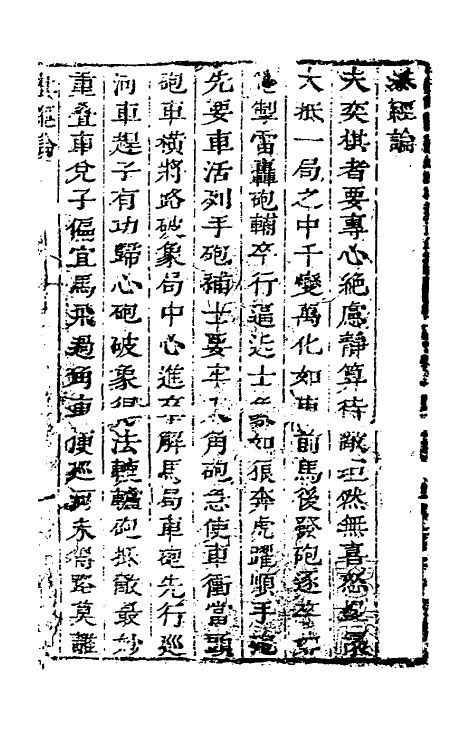 棊經論
夫奕棋者要專心絶慮靜算待敵坦然無喜怒
大抵一局之中千變萬化如車前馬後發砲逐卒
掣雷轟砲輔卒行逼近士象如狼奔虎躍順手砲
先要車活列手砲補士要牢角砲急使車衝當頭
砲車橫將路破象局中心進卒解馬局車砲先行巡
河車趕子有功歸心砲破象得法轆轤砲抵敵最妙
重叠車兌子偏宜馬飛過角車便巡河未得路莫離